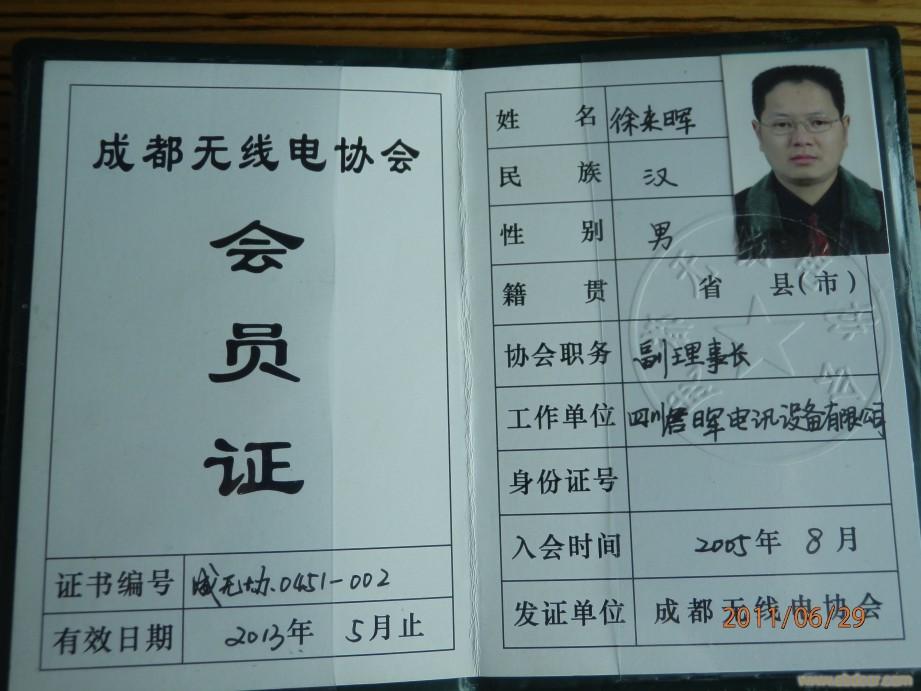 成都无线电协会
会
员
证
证书编号 成无协.0451-002
有效日期 2013年 5月止
姓 名 徐来晖
民 族 汉
性 别 男
籍 贯 省 县(市)
协会职务 副理事长
工作单位 四川君晖电讯设备有限公司
身份证号
入会时间 2005年 8月
发证单位 成都无线电协会
2011/06/29